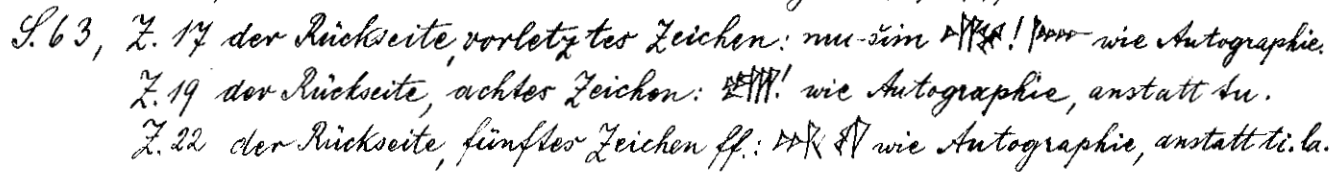 S. 63, Z. 17 der Rückseite, vorletztes Zeichen: mu-šim ! wie Autographie.
Z. 19 der Rückseite, achtes Zeichen: ! wie Autographie, anstatt su.
Z. 22 der Rückseite, fünftes Zeichen ff.: wie Autographie, anstatt ti. la.